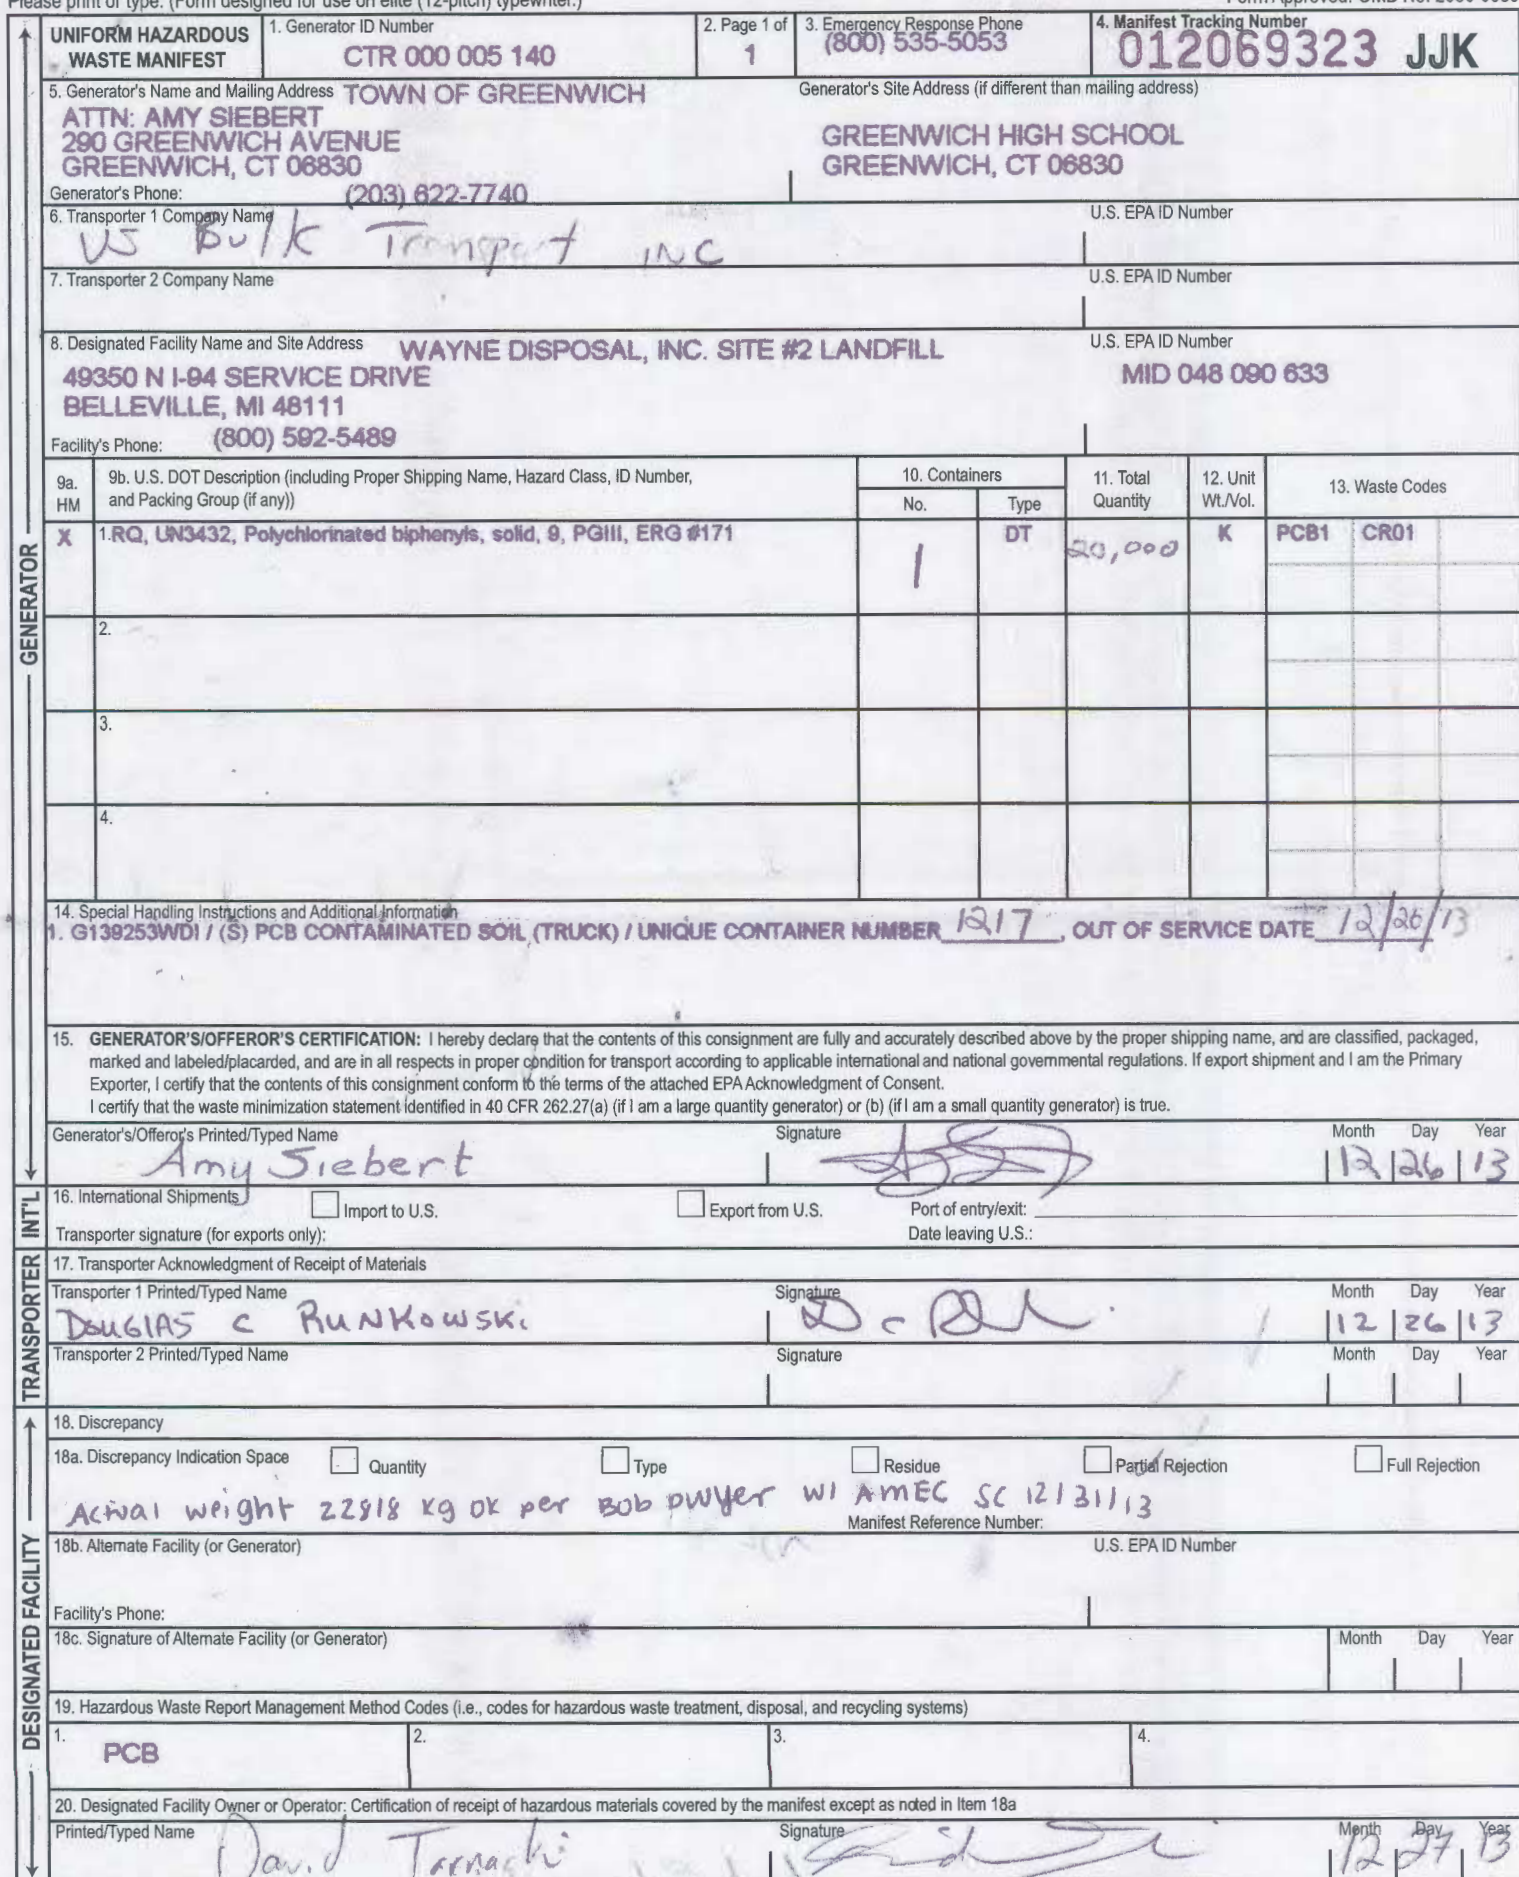 Please print or type. (Form designed for use on elite (12-pitch) typewriter.)
UNIFORM HAZARDOUS WASTE MANIFEST
1. Generator ID Number
CTR 000 005 140
2. Page 1 of
1
3. Emergency Response Phone
(800) 535-5053
4. Manifest Tracking Number
012069323 JJK
5. Generator's Name and Mailing Address TOWN OF GREENWICH
ATTN: AMY SIEBERT
290 GREENWICH AVENUE
GREENWICH, CT 06830
Generator's Phone: (203) 622-7740
Generator's Site Address (if different than mailing address)
GREENWICH HIGH SCHOOL
GREENWICH, CT 06830
6. Transporter 1 Company Name
US Bulk Transport INC
U.S. EPA ID Number
7. Transporter 2 Company Name
U.S. EPA ID Number
8. Designated Facility Name and Site Address WAYNE DISPOSAL, INC. SITE #2 LANDFILL
49350 N I-94 SERVICE DRIVE
BELLEVILLE, MI 48111
Facility's Phone: (800) 592-5489
U.S. EPA ID Number
MID 048 090 633
9a. HM
9b. U.S. DOT Description (including Proper Shipping Name, Hazard Class, ID Number, and Packing Group (if any))
10. Containers
No. Type
11. Total Quantity
12. Unit Wt./Vol.
13. Waste Codes
X 1. RQ, UN3432, Polychlorinated biphenyls, solid, 9, PGIII, ERG #171 1 DT 20,000 K PCB1 CR01
2.
3.
4.
14. Special Handling Instructions and Additional Information
1. G139253WDI / (S) PCB CONTAMINATED SOIL (TRUCK) / UNIQUE CONTAINER NUMBER 1217, OUT OF SERVICE DATE 12/26/13
15. GENERATOR'S/OFFEROR'S CERTIFICATION: I hereby declare that the contents of this consignment are fully and accurately described above by the proper shipping name, and are classified, packaged,
marked and labeled/placarded, and are in all respects in proper condition for transport according to applicable international and national governmental regulations. If export shipment and I am the Primary
Exporter, I certify that the contents of this consignment conform to the terms of the attached EPA Acknowledgment of Consent.
I certify that the waste minimization statement identified in 40 CFR 262.27(a) (if I am a large quantity generator) or (b) (if I am a small quantity generator) is true.
Generator's/Offeror's Printed/Typed Name Signature Month Day Year
Amy Siebert 12 26 13
16. International Shipments Import to U.S. Export from U.S. Port of entry/exit:
Transporter signature (for exports only): Date leaving U.S.:
17. Transporter Acknowledgment of Receipt of Materials
Transporter 1 Printed/Typed Name Signature Month Day Year
DOUGLAS C RUNKOWSKI 12 26 13
Transporter 2 Printed/Typed Name Signature Month Day Year
18. Discrepancy
18a. Discrepancy Indication Space Quantity Type Residue Partial Rejection Full Rejection
Actual weight 22818 kg OK per Bob Dwyer w/ AMEC SC 12/31/13
Manifest Reference Number:
18b. Alternate Facility (or Generator) U.S. EPA ID Number
Facility's Phone:
18c. Signature of Alternate Facility (or Generator) Month Day Year
19. Hazardous Waste Report Management Method Codes (i.e., codes for hazardous waste treatment, disposal, and recycling systems)
1. PCB 2. 3. 4.
20. Designated Facility Owner or Operator: Certification of receipt of hazardous materials covered by the manifest except as noted in Item 18a
Printed/Typed Name Signature Month Day Year
David 12 27 13
GENERATOR
INT'L
TRANSPORTER
DESIGNATED FACILITY